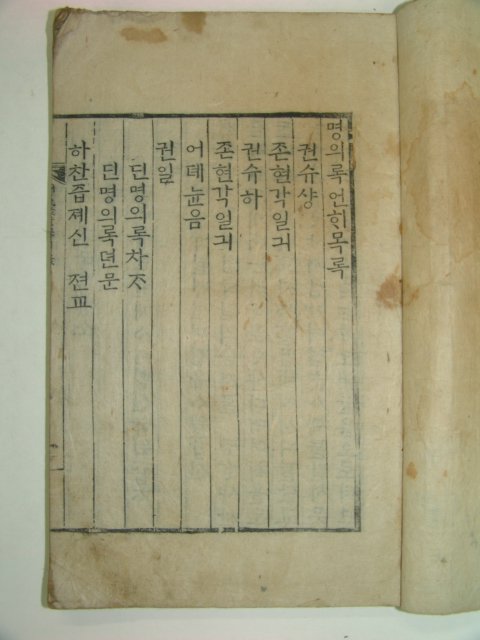 명의록언ᄒᆡ목록
권슈샹
존현각일긔
권슈하
존현각일긔
어톄뉸음
권일
딘명의록차ᄌᆞ
딘명의록뎐문
하찬즙졔신 젼교